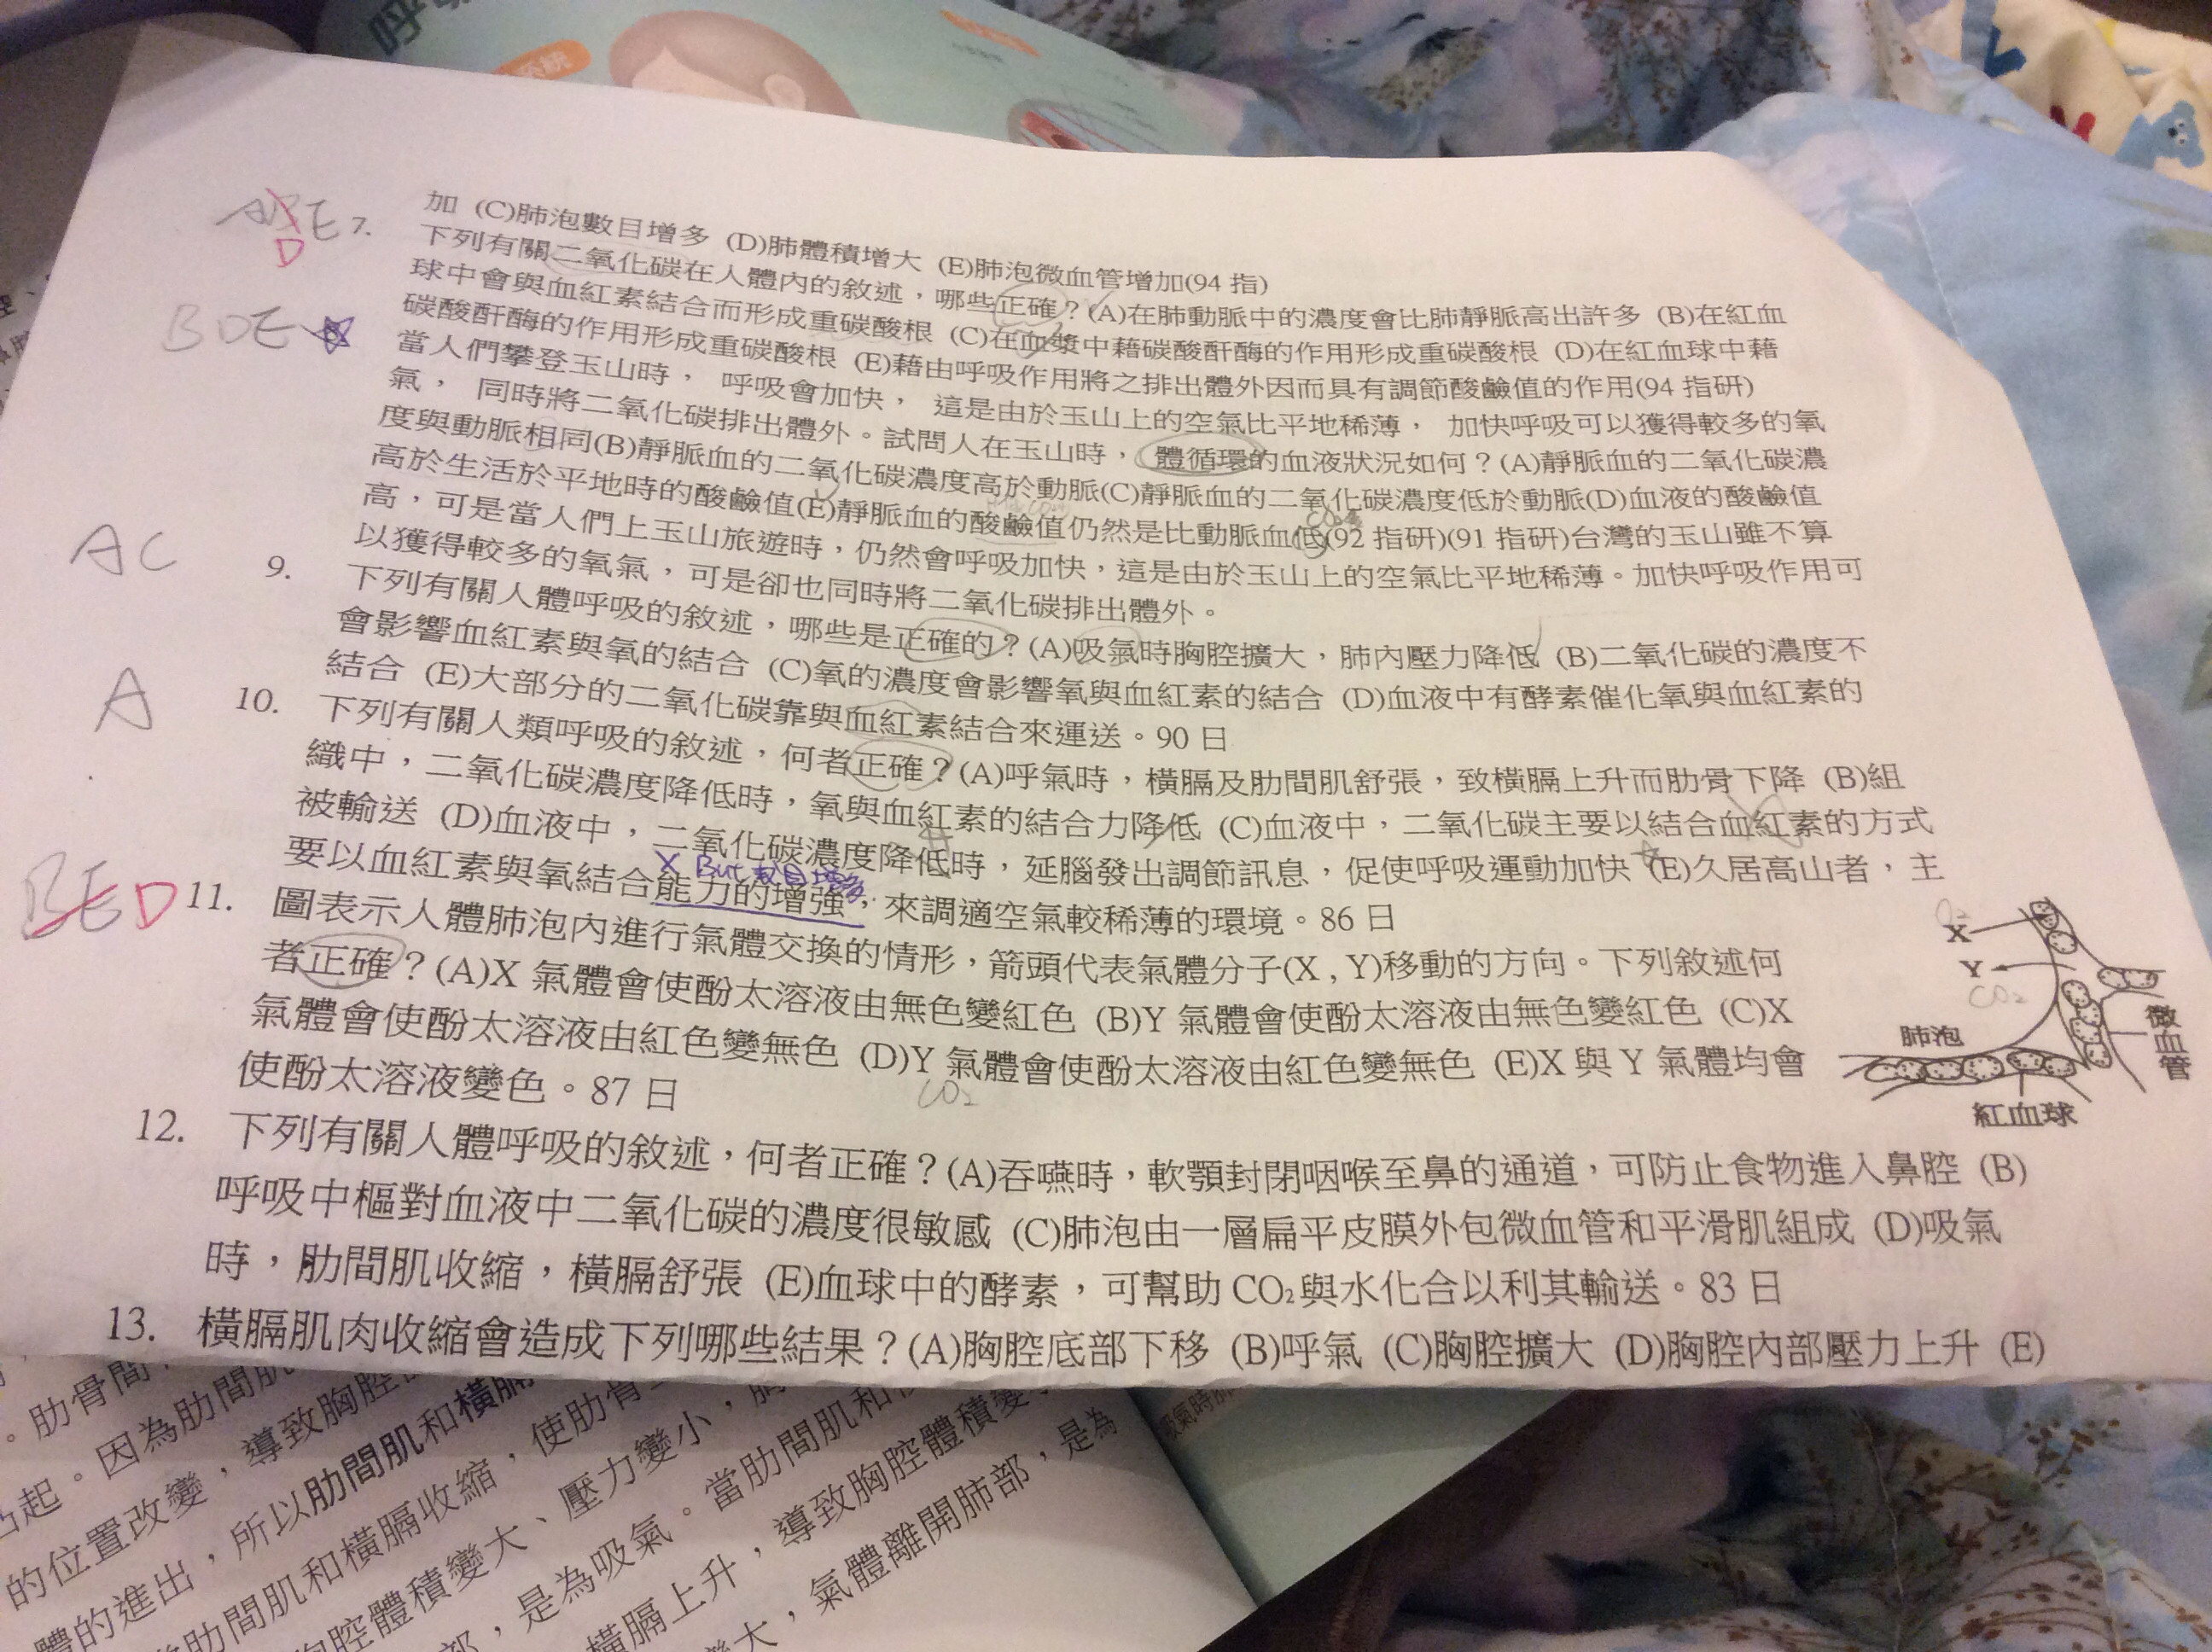 加 (C)肺泡數目增多 (D)肺體積增大 (E)肺泡微血管增加(94 指)
ABE D
7. 下列有關二氧化碳在人體內的敘述，哪些正確？(A)在肺動脈中的濃度會比肺靜脈高出許多 (B)在紅血
球中會與血紅素結合而形成重碳酸根 (C)在血漿中藉碳酸酐酶的作用形成重碳酸根 (D)在紅血球中藉
碳酸酐酶的作用形成重碳酸根 (E)藉由呼吸作用將之排出體外因而具有調節酸鹼值的作用(94 指研)
BDE
當人們攀登玉山時， 呼吸會加快， 這是由於玉山上的空氣比平地稀薄， 加快呼吸可以獲得較多的氧
氣， 同時將二氧化碳排出體外。試問人在玉山時，體循環的血液狀況如何？(A)靜脈血的二氧化碳濃
度與動脈相同(B)靜脈血的二氧化碳濃度高於動脈(C)靜脈血的二氧化碳濃度低於動脈(D)血液的酸鹼值
高於生活於平地時的酸鹼值(E)靜脈血的酸鹼值仍然是比動脈血低(92 指研)(91 指研)台灣的玉山雖不算
高，可是當人們上玉山旅遊時，仍然會呼吸加快，這是由於玉山上的空氣比平地稀薄。加快呼吸作用可
以獲得較多的氧氣，可是卻也同時將二氧化碳排出體外。
AC
9. 下列有關人體呼吸的敘述，哪些是正確的？(A)吸氣時胸腔擴大，肺內壓力降低 (B)二氧化碳的濃度不
會影響血紅素與氧的結合 (C)氧的濃度會影響氧與血紅素的結合 (D)血液中有酵素催化氧與血紅素的
結合 (E)大部分的二氧化碳靠與血紅素結合來運送。90 日
A
10. 下列有關人類呼吸的敘述，何者正確？(A)呼氣時，橫膈及肋間肌舒張，致橫膈上升而肋骨下降 (B)組
織中，二氧化碳濃度降低時，氧與血紅素的結合力降低 (C)血液中，二氧化碳主要以結合血紅素的方式
被輸送 (D)血液中，二氧化碳濃度降低時，延腦發出調節訊息，促使呼吸運動加快 (E)久居高山者，主
升
X But 數目增多
要以血紅素與氧結合能力的增強，來調適空氣較稀薄的環境。86 日
BE D
11. 圖表示人體肺泡內進行氣體交換的情形，箭頭代表氣體分子(X , Y)移動的方向。下列敘述何
者正確？(A)X 氣體會使酚太溶液由無色變紅色 (B)Y 氣體會使酚太溶液由無色變紅色 (C)X
氣體會使酚太溶液由紅色變無色 (D)Y 氣體會使酚太溶液由紅色變無色 (E)X 與 Y 氣體均會
使酚太溶液變色。87 日
CO₂
O₂
X
Y
CO₂
肺泡
微血管
紅血球
12. 下列有關人體呼吸的敘述，何者正確？(A)吞嚥時，軟顎封閉咽喉至鼻的通道，可防止食物進入鼻腔 (B)
呼吸中樞對血液中二氧化碳的濃度很敏感 (C)肺泡由一層扁平皮膜外包微血管和平滑肌組成 (D)吸氣
時，肋間肌收縮，橫膈舒張 (E)血球中的酵素，可幫助 CO₂與水化合以利其輸送。83 日
13. 橫膈肌肉收縮會造成下列哪些結果？(A)胸腔底部下移 (B)呼氣 (C)胸腔擴大 (D)胸腔內部壓力上升 (E)
。肋骨間
凸起。因為肋間肌
的位置改變，導致胸腔
體的進出，所以肋間肌和橫膈
肋間肌和橫膈收縮，使肋骨
胸腔體積變大、壓力變小，
部，是為吸氣。當肋間肌和
橫膈上升，導致胸腔體積變
大，氣體離開肺部，是為